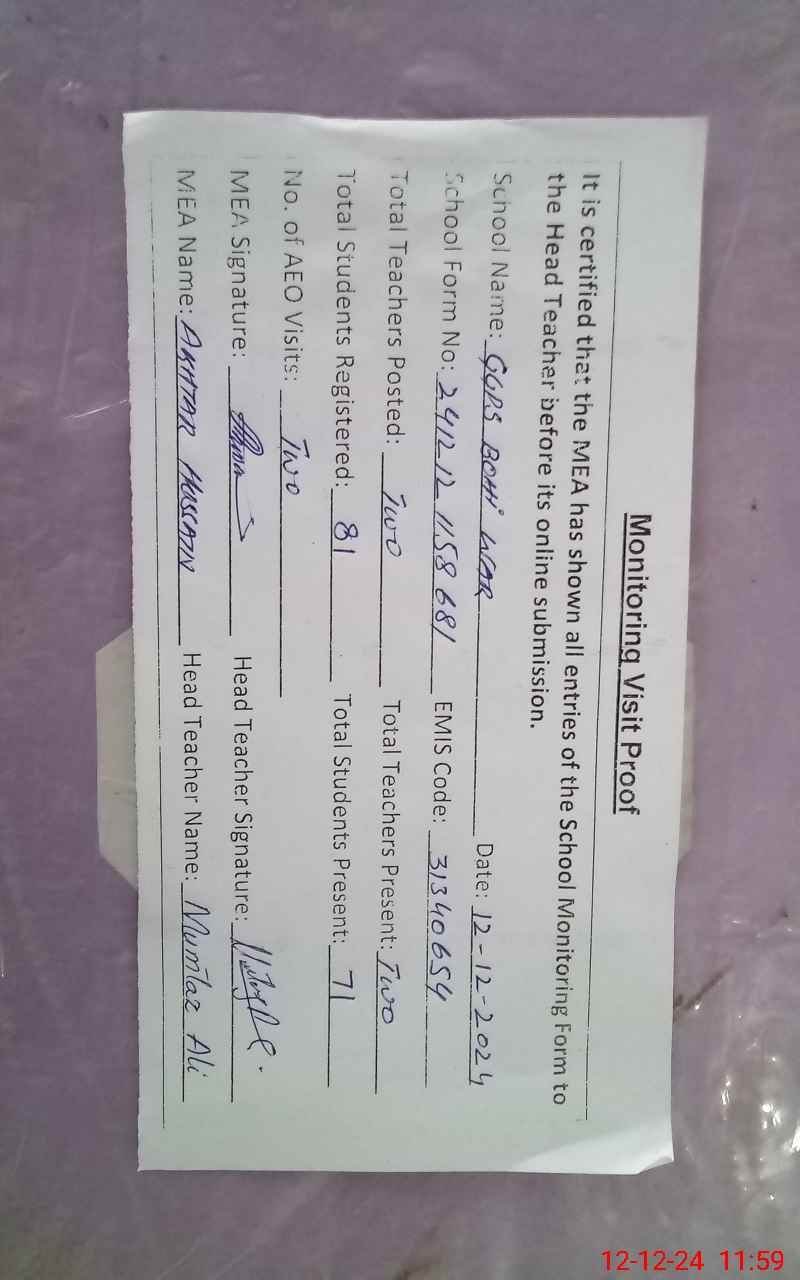 Monitoring Visit Proof
It is certified that the MEA has shown all entries of the School Monitoring Form to
the Head Teacher before its online submission.
School Name: GGPS BOHI WAR Date: 12-12-2024
School Form No: 2412 12 1158 681 EMIS Code: 31340654
Total Teachers Posted: Two Total Teachers Present: Two
Total Students Registered: 81 Total Students Present: 71
No. of AEO Visits: Two
MEA Signature: Head Teacher Signature:
MEA Name: AKHTAR HUSSAIN Head Teacher Name: Mumtaz Ali
12-12-24 11:59